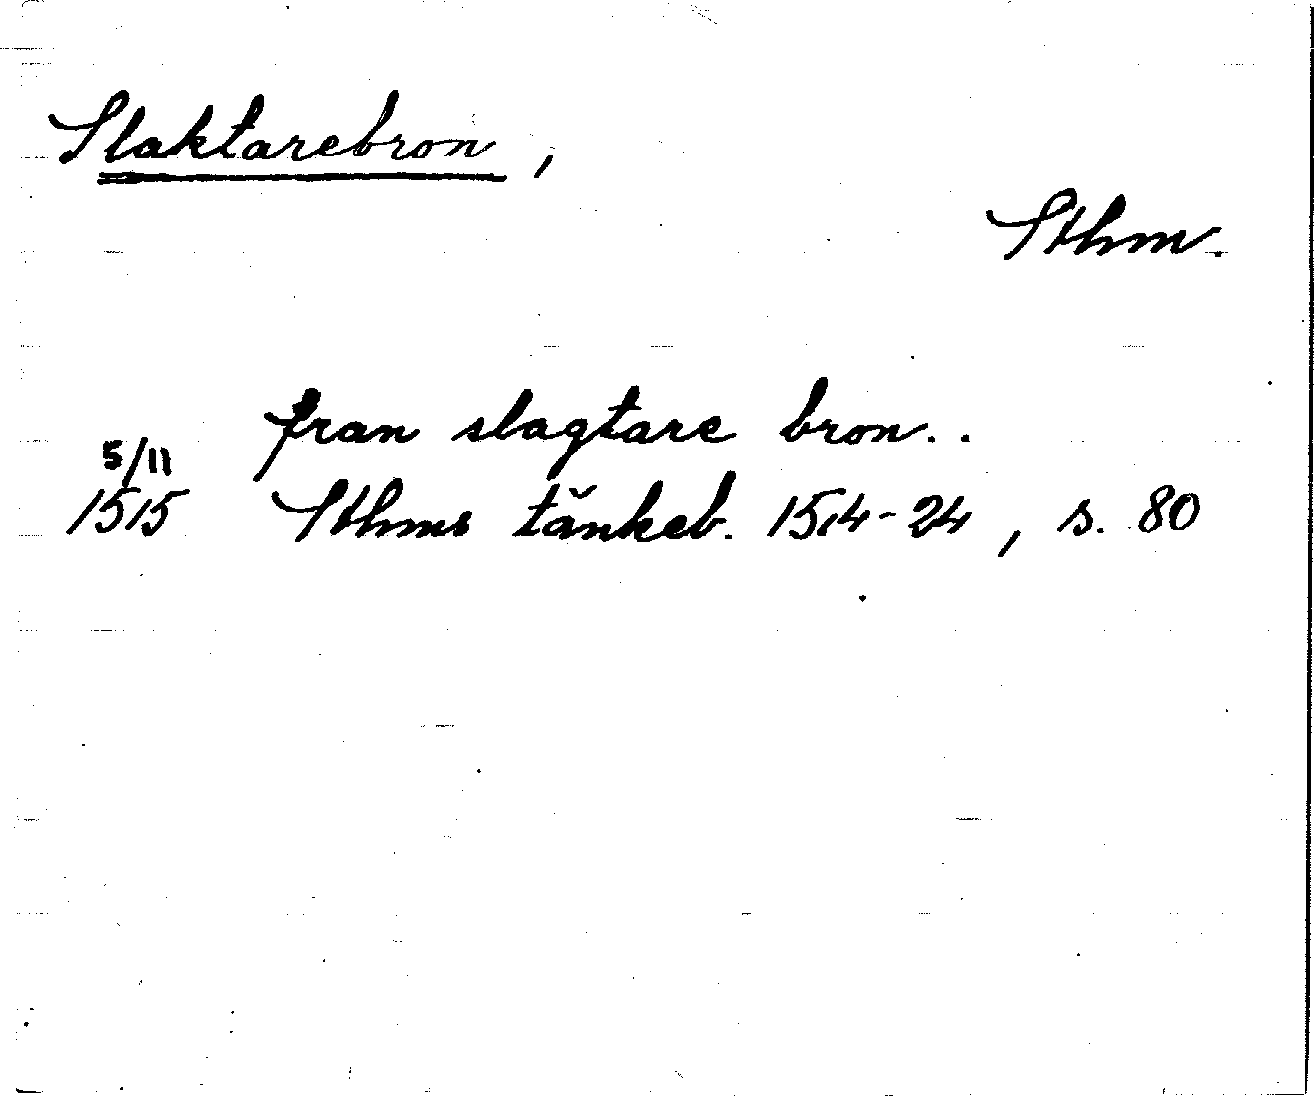 Slaktarebron,
Sthm.
fran slagtare bron..
5/11
1515 Sthms tänkeb. 1514-24, s. 80